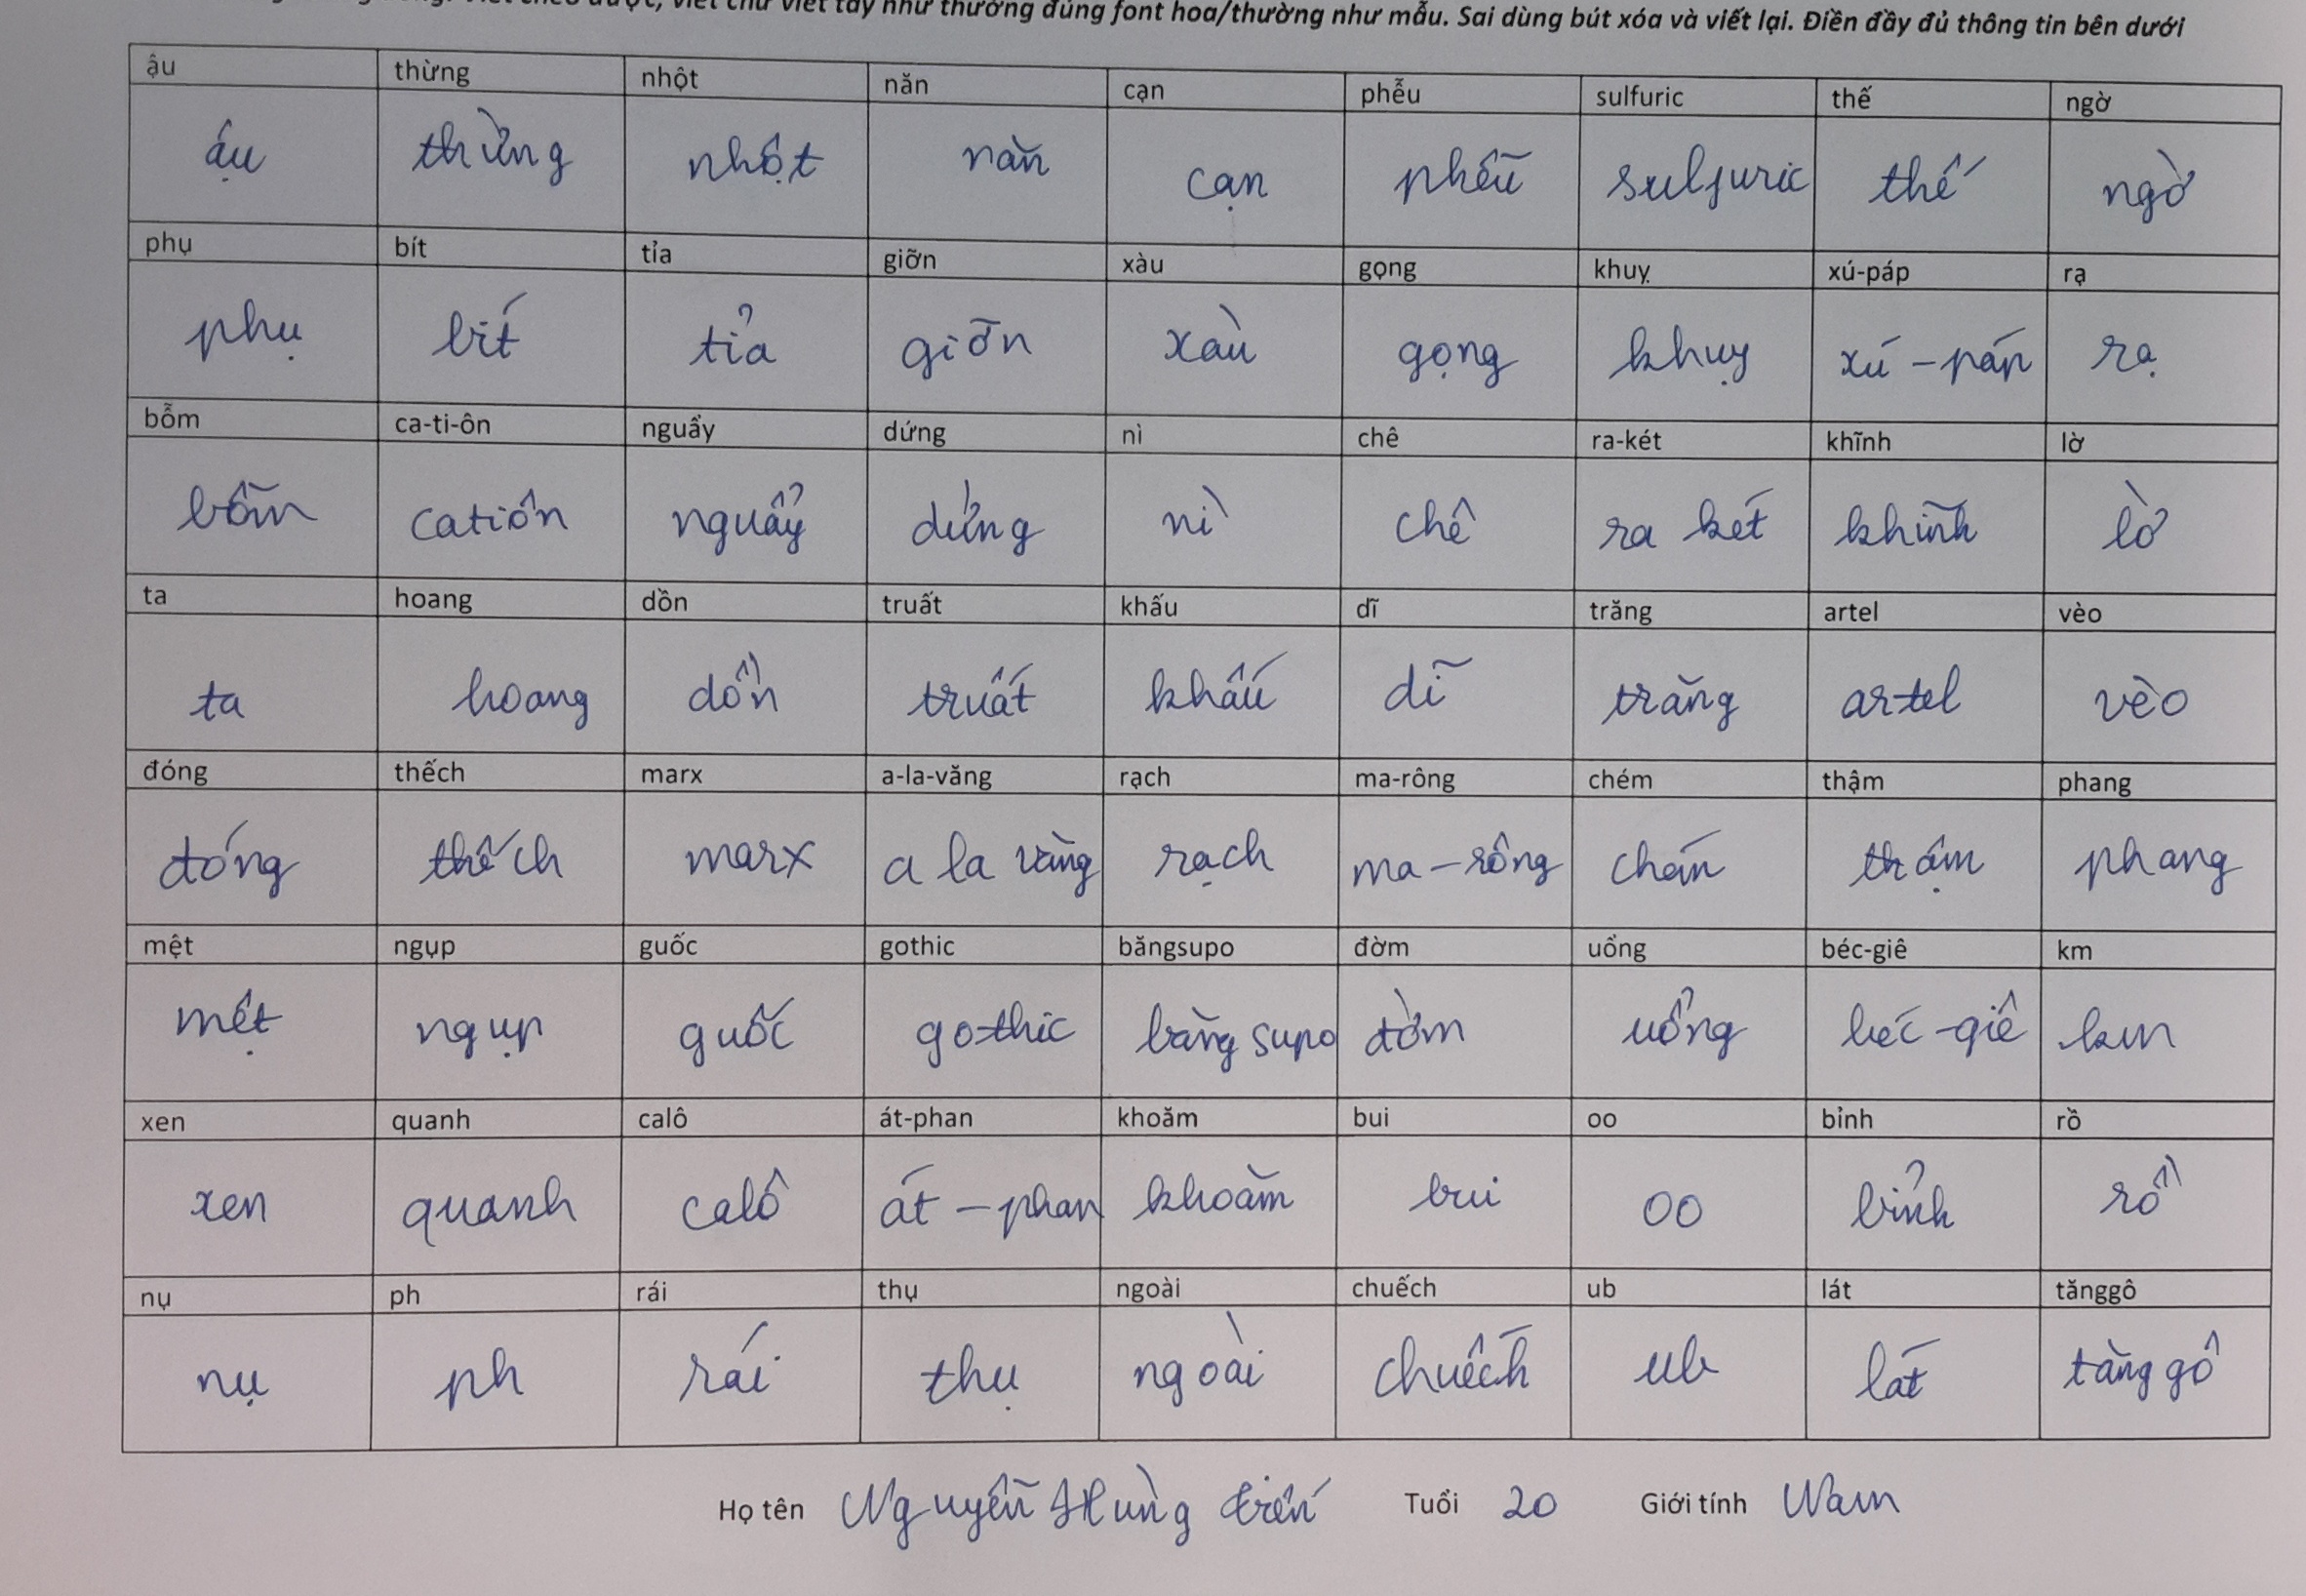 viết chữ viết tay như thường đúng font hoa/thường như mẫu. Sai dùng bút xóa và viết lại. Điền đầy đủ thông tin bên dưới
ậu thừng nhột năn cạn phễu sulfuric thế ngờ
ậu thừng nhột năn cạn phễu sulfuric thế ngờ
phụ bít tỉa giỡn xàu gọng khuỵ xú-páp rạ
phụ bít tỉa giỡn xàu gọng khuỵ xú-páp rạ
bỗm ca-ti-ôn nguẩy dứng nì chê ra-két khĩnh lờ
bỗm catiôn nguẩy dứng nì chê ra két khĩnh lờ
ta hoang dồn truất khấu dĩ trăng artel vèo
ta hoang dồn truất khấu dĩ trăng artel vèo
đóng thếch marx a-la-văng rạch ma-rông chém thậm phang
đóng thếch marx a la văng rạch ma-rông thậm phang
mệt ngụp guốc gothic băngsupo đờm uổng béc-giê km
mệt ngụp guốc gothic băng supo đờm uổng béc-giê km
xen quanh calô át-phan khoăm bui oo bỉnh rồ
xen quanh calô át-phan khoăm bui oo bỉnh rồ
nụ ph rái thụ ngoài chuếch ub lát tănggô
nụ ph rái thụ ngoài chuếch ub lát tăng gô
Họ tên Nguyễn Hùng Tuổi 20 Giới tính Nam